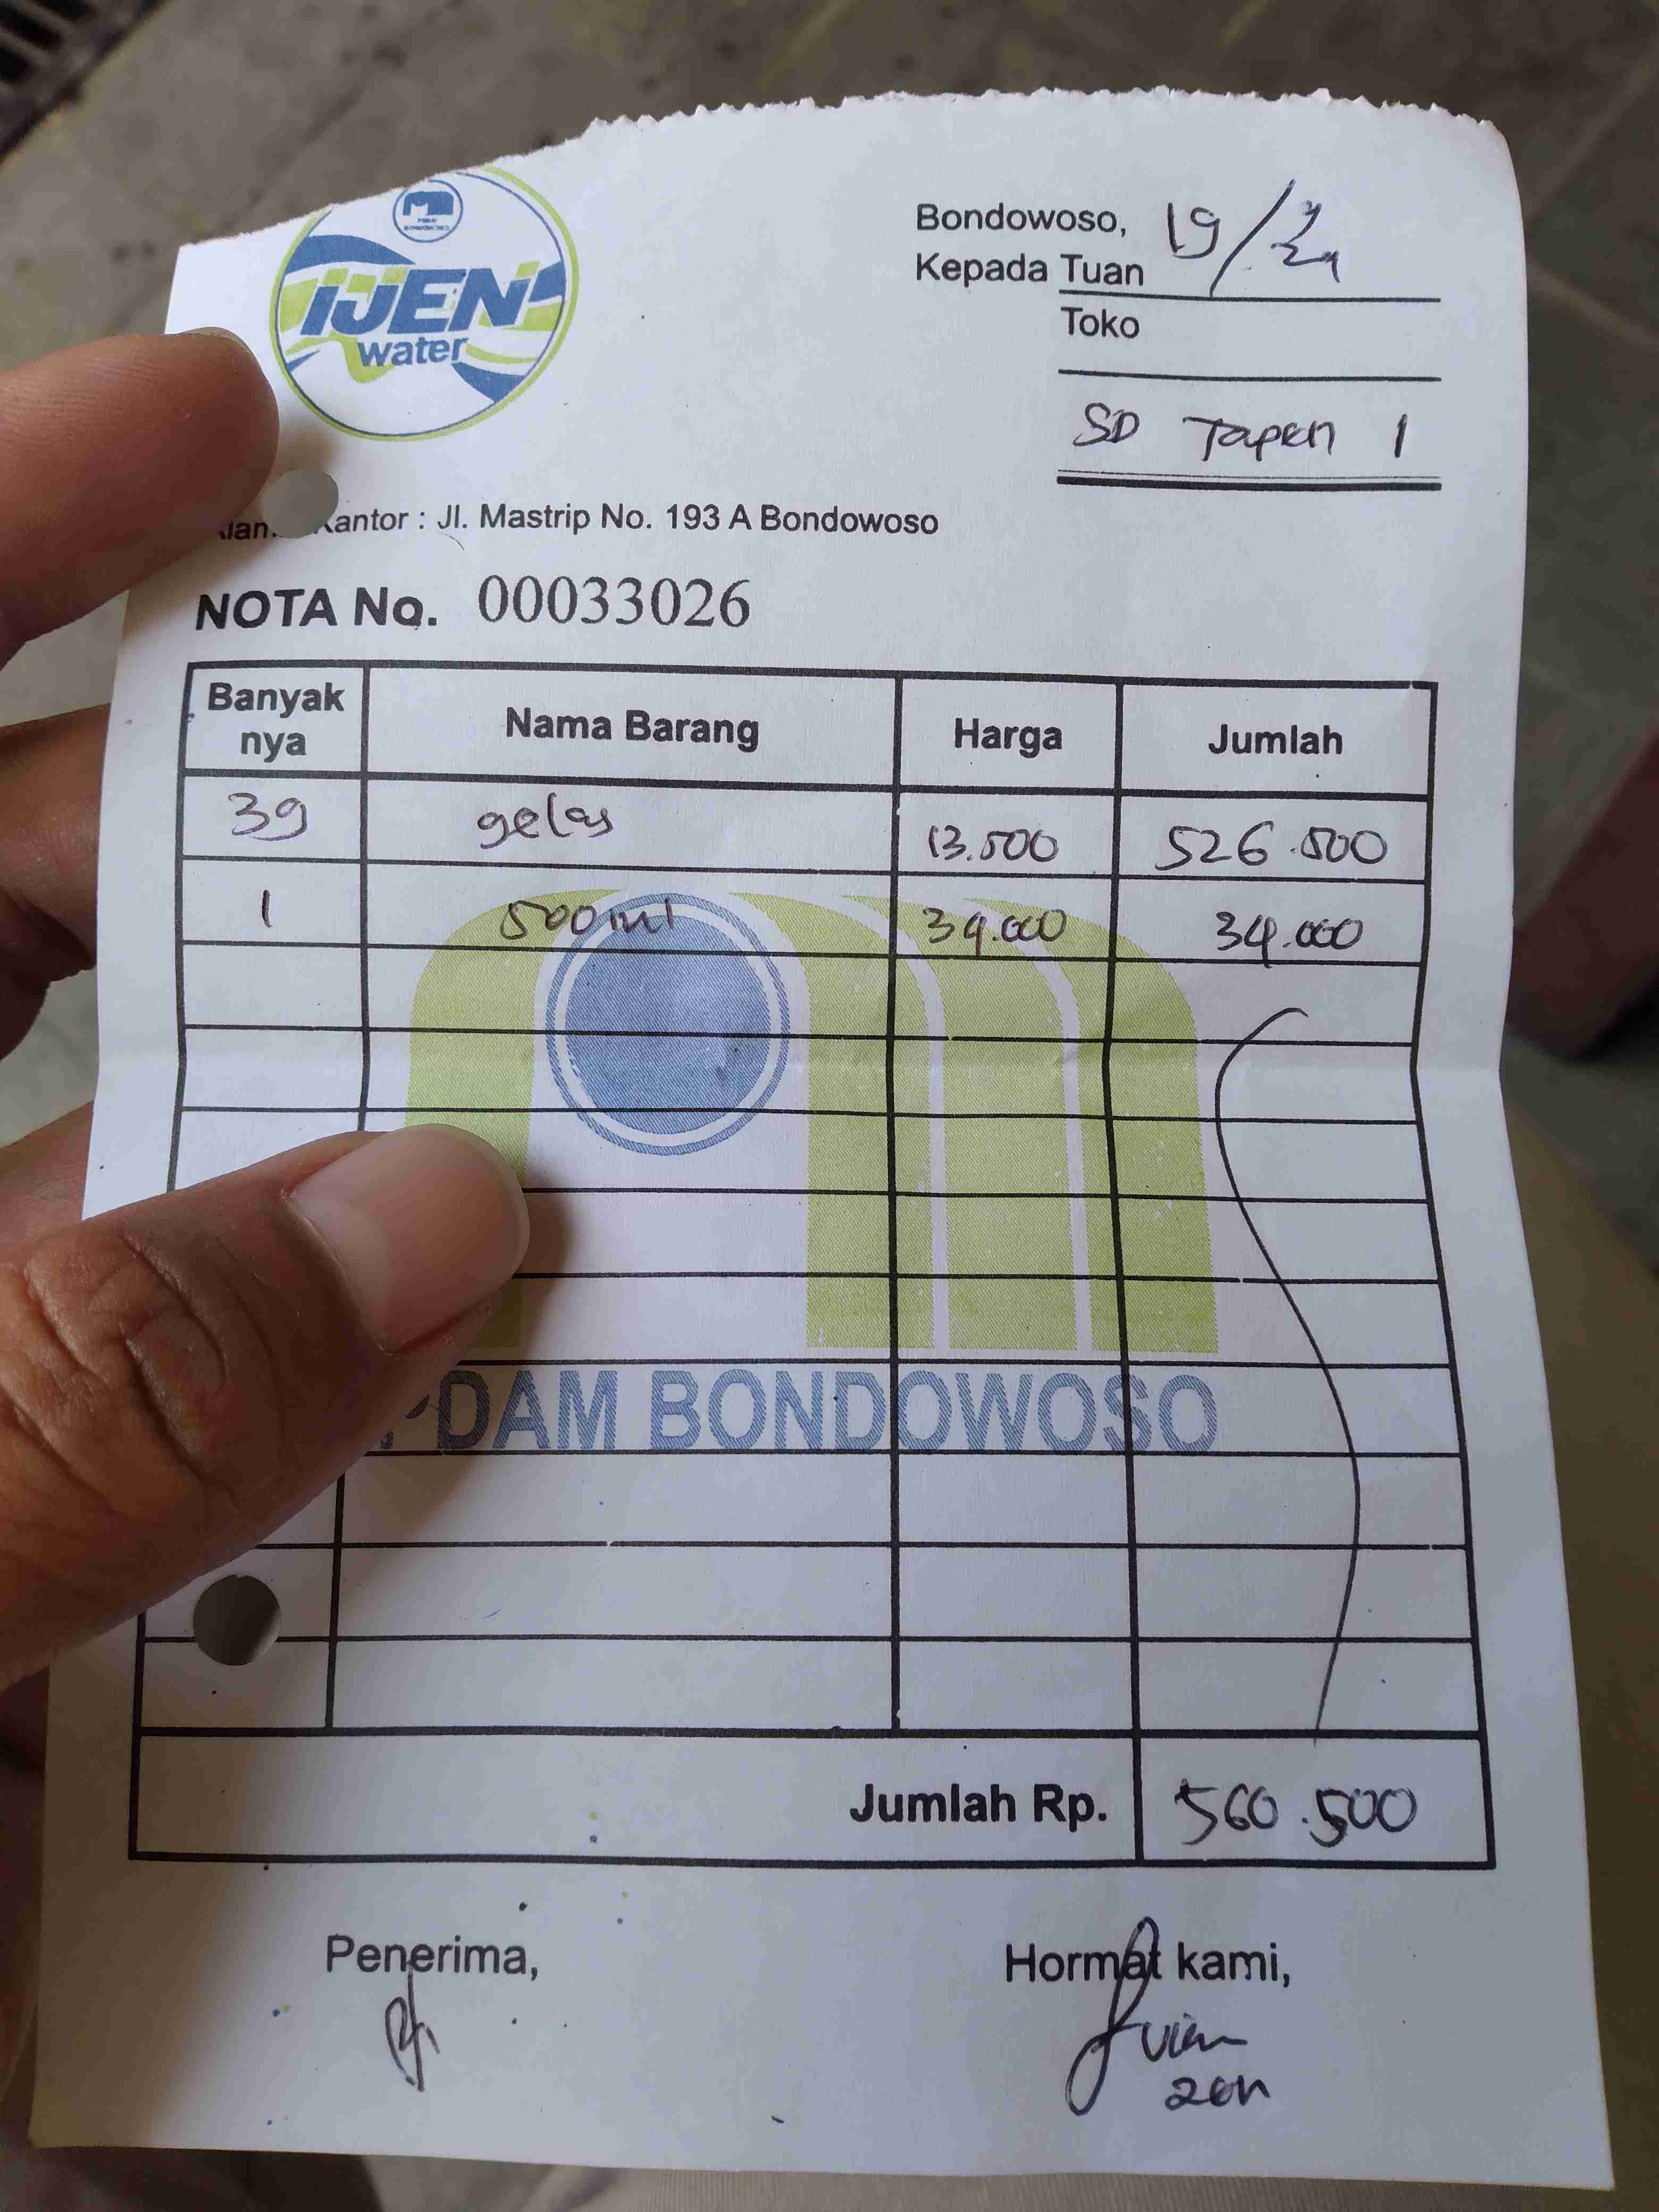 IJEN
water
Bondowoso, 19/
Kepada Tuan
Toko
SD Tapen 1
Kantor : Jl. Mastrip No. 193 A Bondowoso
NOTA No. 00033026
Banyak nya Nama Barang Harga Jumlah
39 gelas 13.500 526.500
1 500 ml 34.000 34.000
PDAM BONDOWOSO
Jumlah Rp. 560.500
Penerima, Hormat kami,